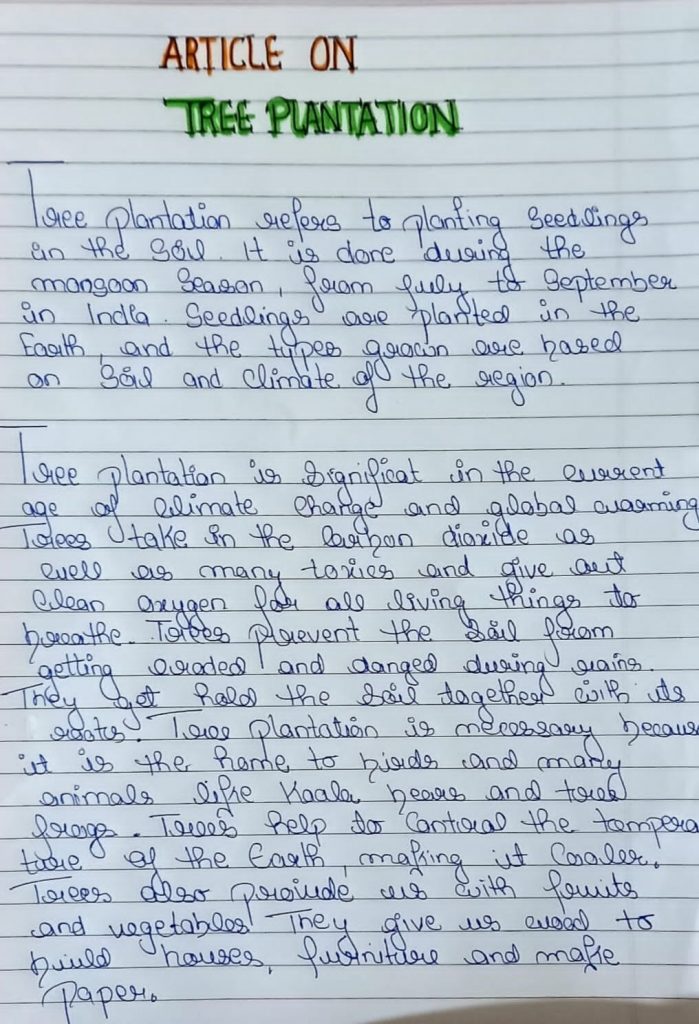 ARTICLE ON
TREE PLANTATION
Tree plantation refers to planting Seedlings
in the Soil. It is done during the
monsoon Season, from July to September
in India. Seedlings are planted in the
Earth, and the types grown are based
on Soil and climate of the region.
Tree plantation is Significat in the current
age of climate change and global warming
Trees take in the carbon dioxide as
well as many toxics and give out
clean oxygen for all living things to
breathe. Trees prevent the Soil from
getting eroded and danged during rains.
They get hold the soil together with its
roots. Tree plantation is necessary becaus
it is the home to birds and many
animals like Kaola bears and tree
frogs. Trees help to Control the tempera
ture of the Earth, making it Cooler.
Trees also provide us with fruits
and vegetables They give us wood to
build houses, furniture and make
paper.